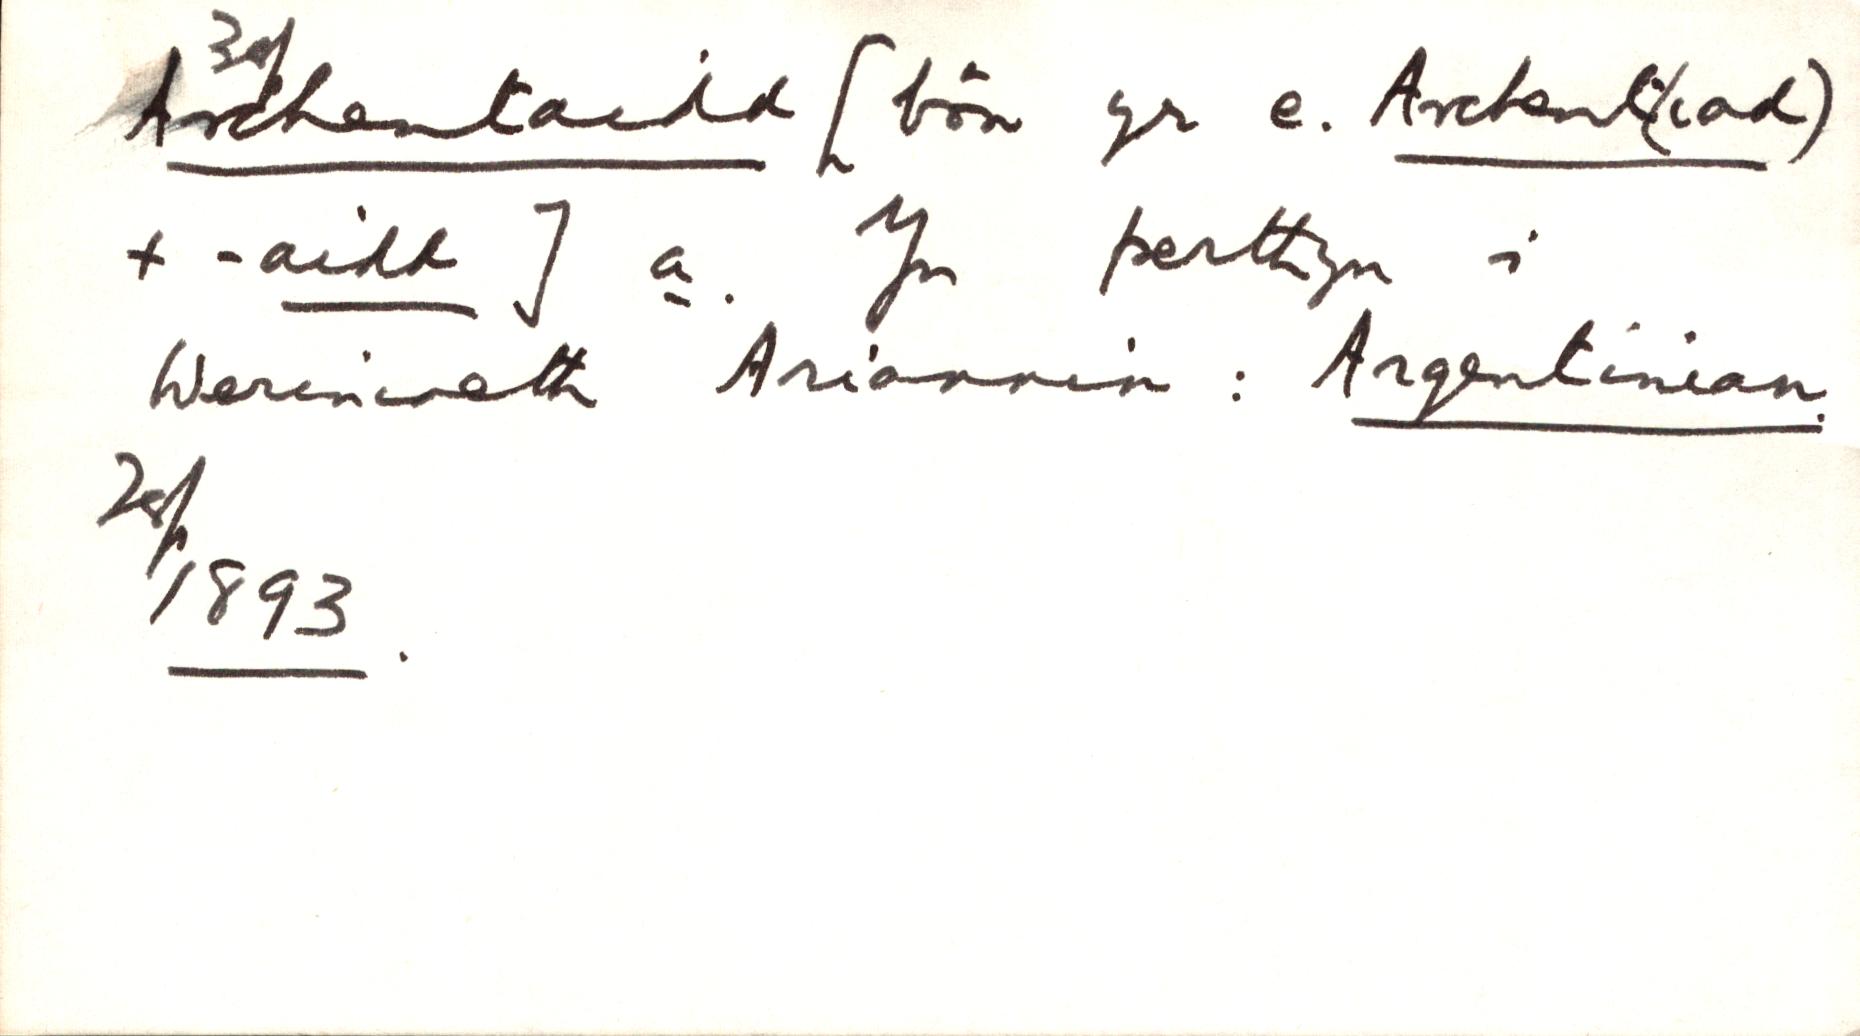 3ep
Archentaidd [bôn yr e. Archent(iad)
+ -aidd ] a. Yn perthyn i
Weriniaeth Ariannin : Argentinian.
2ep
1893.